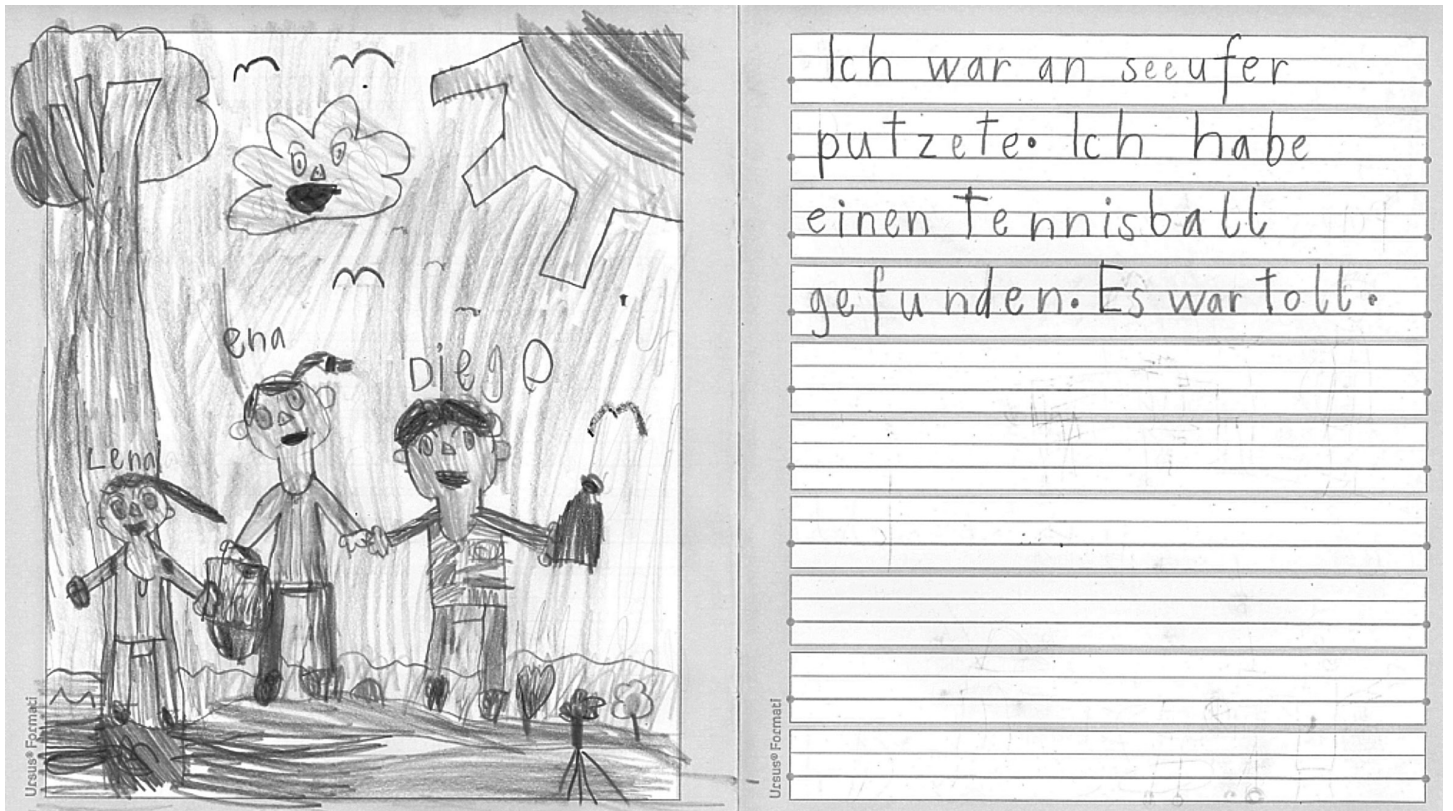 ena
Diego
Lena
Ursus® Formati
Ich war an seeufer
putzete. Ich habe
einen Tennisball
gefunden. Es war toll.
Ursus® Formati